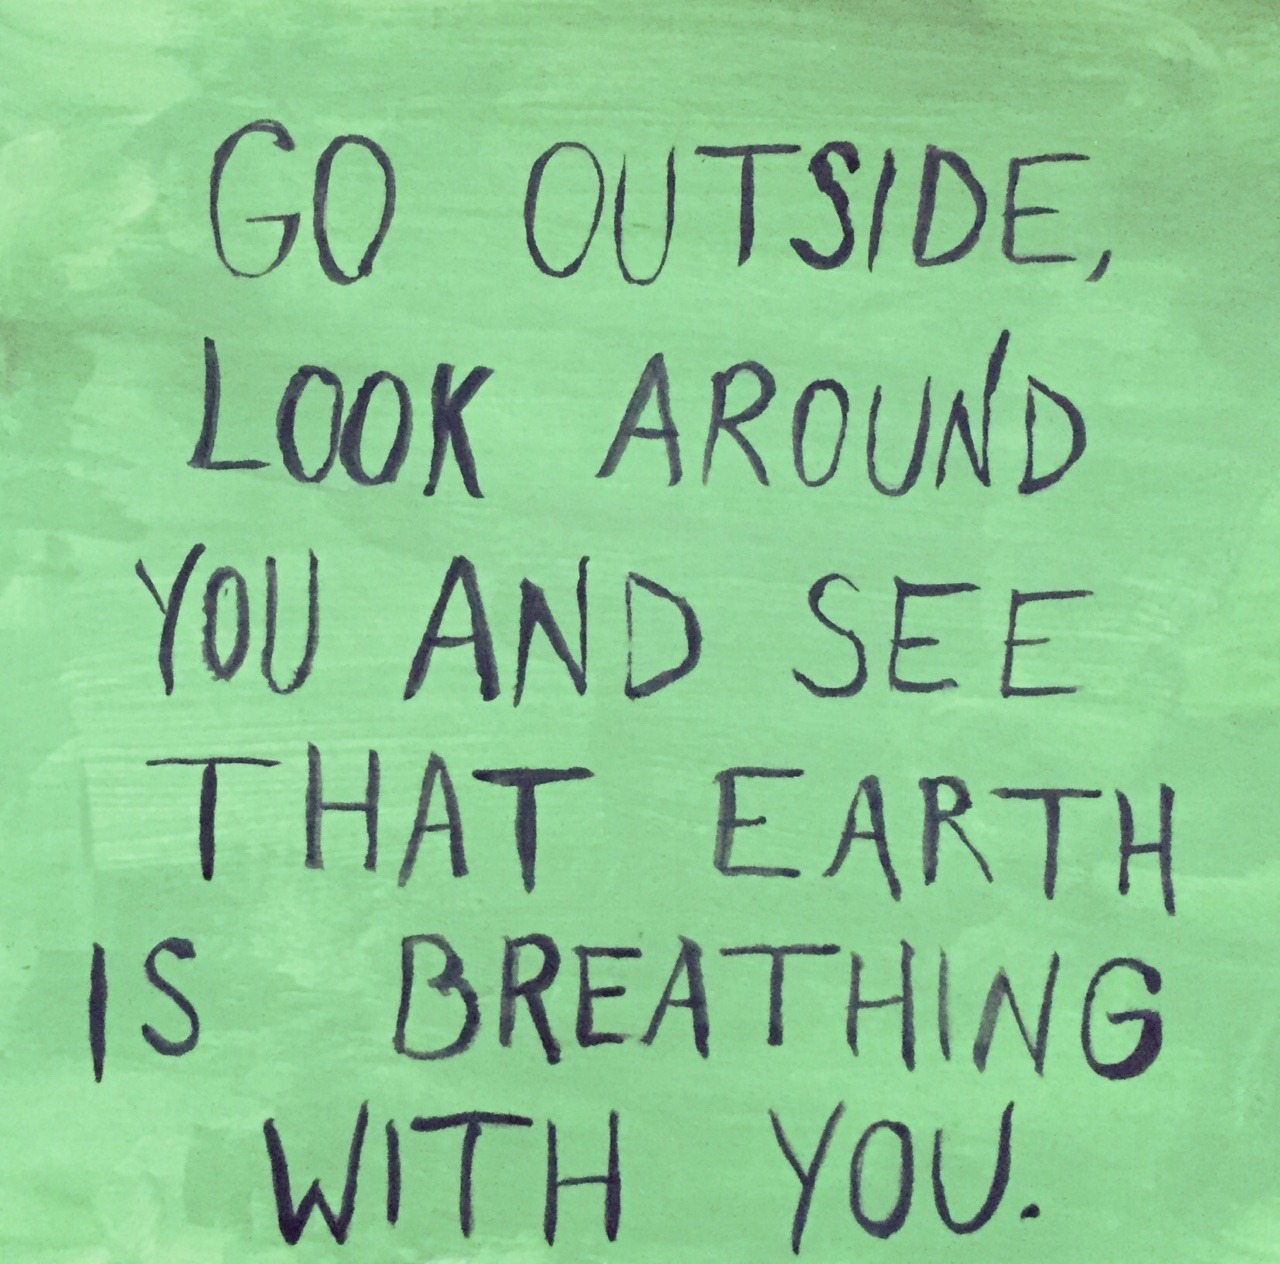 GO OUTSIDE,
LOOK AROUND
YOU AND SEE
THAT EARTH
IS BREATHING
WITH YOU.